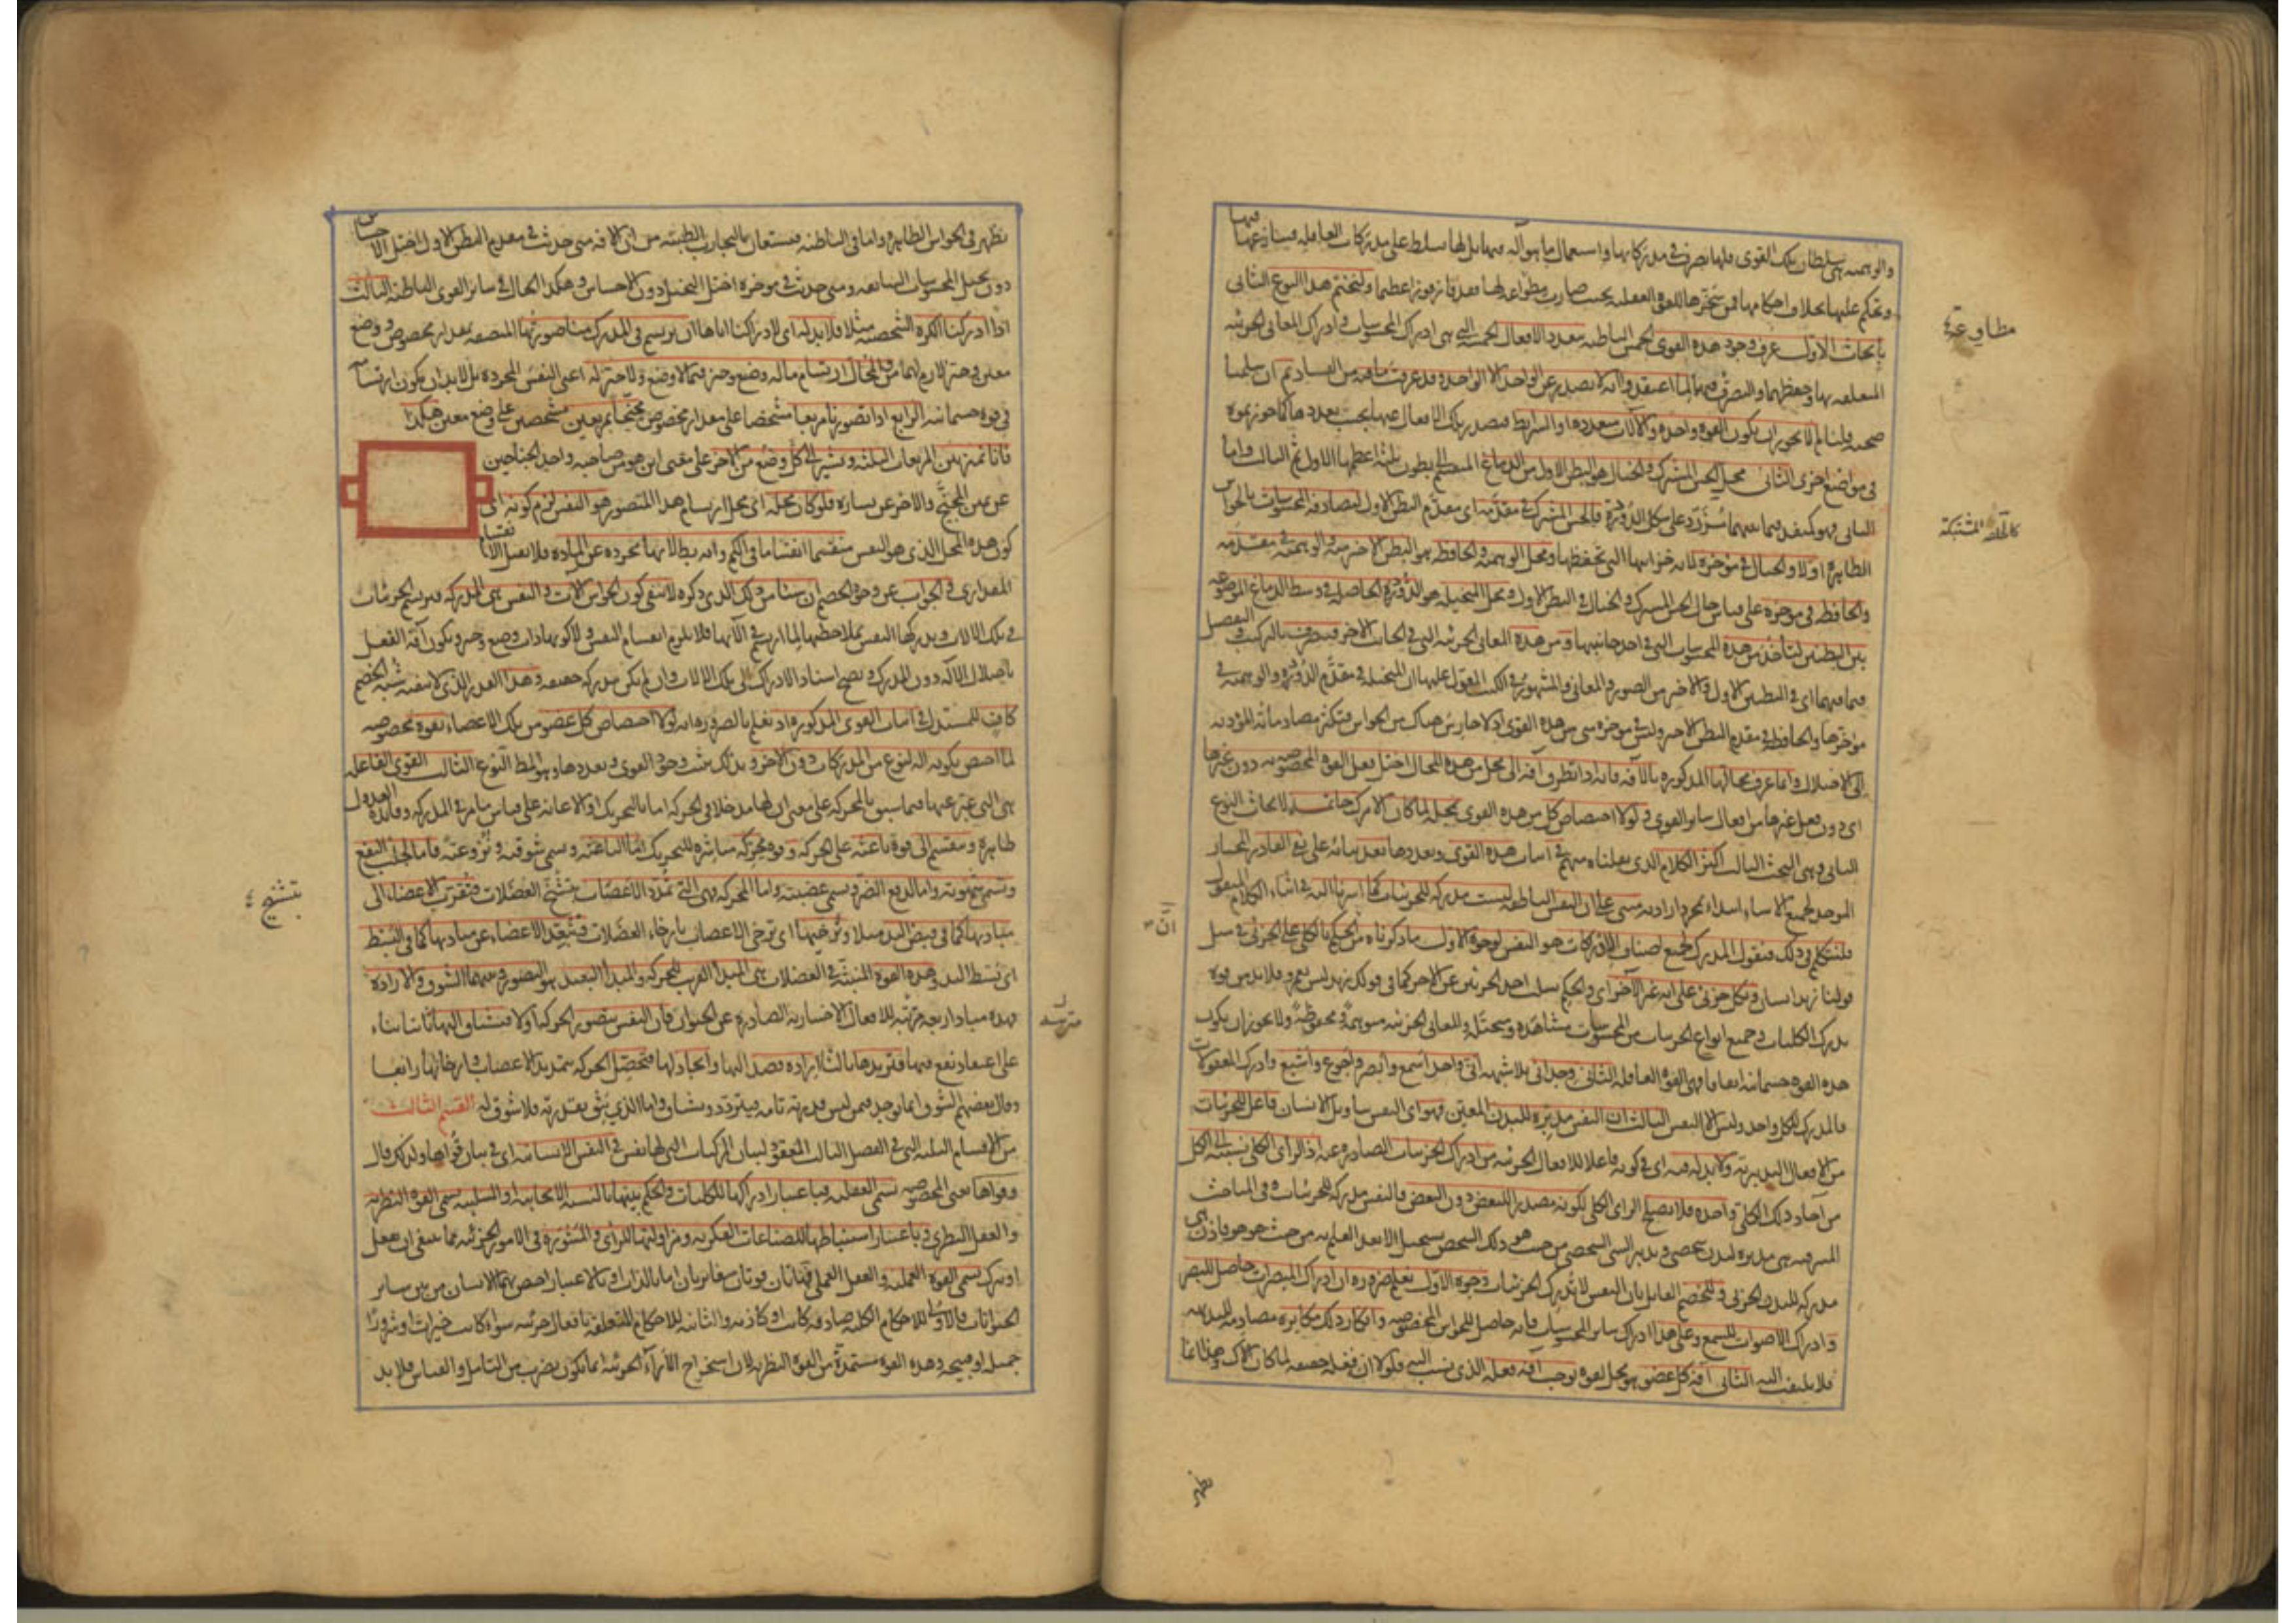 والوهمية هي سلطان تلك القوى فلها تصرف في مدركاتها واستعمال ما هو آلة فيها بل لها تسلط على مدركات العاقلة فتنازعها فيها
وتحكم عليها بخلاف احكامها فمن سخرها للقوة العقلية بحيث صارت مطاوعة لها فقد فاز فوزا عظيما ولنختم هذا النوع الثاني
بأبحاث الاول عرف وجود هذه القوى الخمس الباطنة بتعدد الافعال الخمسة التي هي ادراك المحسوسات وادراك المعاني الجزئية
المتعلقة بها وحفظهما والتصرف فيهما لما اعتقد وا انه لا يصدر عن الواحد الا الواحد وقد عرفت ما فيه من الفساد ثم ان سلمنا
صحته قلنا لم لا يجوز ان يكون القوة واحدة والآلات متعددة او الشرائط فتصدر تلك الافعال عنها بحسب تعددها كما جوزتموه
في مواضع اخرى الثاني محل الحس المشترك والخيال هو البطن الاول من الدماغ المنقسم الى بطون ثلثة اعظمها الاول ثم الثالث واما
الثاني فهو كمنفذ فيما بينهما مزرد على شكل الدودة فالحس المشترك في مقدمه اي مقدم البطن الاول لتصادفه المحسوسات بالحواس
الظاهرة اولا والخيال في مؤخره لانه خزانتها التي تحفظها ومحل الوهمية والحافظة هو البطن الاخير منه والوهمية في مقدمه
والحافظة في مؤخره على قياس حال الحس المشترك والخيال في البطن الاول ومحل المتخيلة هو الدودة الحاصلة في وسط الدماغ الموضوعة
بين البطنين لتأخذ من هذه المحسوسات التي في احد جانبيها ومن هذه المعاني الجزئية التي في الجانب الآخر فتتصرف بالتركيب والتفصيل
فيما فيهما اي في البطنين الاول والاخير من الصور والمعاني والمشهور في الكتب المعول عليها ان المتخيلة في مقدم الدودة والوهمية في
مؤخرها والحافظة في مقدم البطن الاخير وليس في مؤخره شيء من هذه القوى اذ لا حارس هناك من الحواس فتكثر مصادماته المؤدية
الى الاختلال وانما عرف محالها المذكورة بالآفة فانه اذا تطرق آفة الى محل من هذه المحال اختل فعل القوة المخصوصة به دون غيرها
اي دون فعل غيرها من افعال سائر القوى ولولا اختصاص كل من هذه القوى بمحله لما كان الامر كذلك خاتمة لابحاث النوع
الثاني وهي البحث الثالث اكثر الكلام الذي نقلناه منهم في اثبات هذه القوى وتعددها بعد بنائه على نفي القادر المختار
الموجد لجميع الاشياء ابتداء بمجرد ارادته مبني على ان النفس الناطقة ليست مدركة للجزئيات كما اشرنا اليه في اثناء الكلام المنقول
فلنتكلم في ذلك فنقول المدرك لجميع اصناف الادراكات هو النفس لوجوه الاول ما ذكرناه من الحكم بالكلي على الجزئي في مثل
قولنا زيد انسان وبكل جزئي على انه غير الآخر اي والحكم بسلب احد الجزئيين عن الآخر كما في قولك زيد ليس بعمرو فلا بد من قوة
يدرك الكليات وجميع انواع الجزئيات من المحسوسات مشاهدة ومتخيلة والمعاني الجزئية متوهمة ومحفوظة ولا يجوز ان يكون
هذه القوة جسمانية اتفاقا فهي القوة العاقلة الثاني وجداني بلا شبهة اني واحد اسمع وابصر واجوع واشبع وادرك المعقولات
فالمدرك للكل واحد وليس الا النفس الثالث ان النفس مدبرة للبدن المعين فهو اي النفس بتاويل الانسان فاعل للجزئيات
من الافعال التدبيرية ولا بد له فيه اي في كونه فاعلا للافعال الجزئية من ادراك الجزئيات الصادرة عنه اذ الراي الكلي نسبته الى الكل
من آحاد ذلك الكلي واحدة فلا يصلح الراي الكلي لكونه مصدرا للبعض دون البعض فالنفس مدركة للجزئيات وفي المباحث
المشرقية هي مدبرة لبدن شخصي وتدبير الشيء الشخصي من حيث هو ذلك الشخص يستحيل الا بعد العلم به من حيث هو هو فاذن هي
مدركة للبدن الجزئي وللخصم القائل بان النفس لا تدرك الجزئيات وجوه الاول نعلم ضرورة ان ادراك المبصرات حاصل للبصر
وادراك الاصوات للسمع وعلى هذا ادراك سائر المحسوسات فانه حاصل للحواس المخصوصة وانكار ذلك مكابرة مصادمة للبديهة
فلا يلتفت اليه الثاني آفة كل عضو هو محل لقوة توجب آفة فعله الذي نسب اليه فلولا ان فعله حقيقة لما كان كذلك وهذا انما
مطاوعة
كالحلقة المشتبكة
ان
نظهر
يظهر في الحواس الظاهرة واما في الباطنة فيستعان بالتجارب الطبية من ان الآفة متى حدثت في مقدم البطن الاول اختل الاحساس
دون تخيل المحسوسات السابقة ومتى حدثت في مؤخره اختل التخيل دون الاحساس وهكذا الحال في سائر القوى الباطنة الثالث
اذا ادركنا الكرة الشخصية مثلا فلا بد له اي لادراكنا اياها ان يرتسم في المدرك منا صورتها المتصفة بمقدار مخصوص ووضع
معين وحيز لازم لهما ومن المحال ارتسام ما له وضع وحيز فيما لا وضع ولا حيز له اعني النفس المجردة بل لا بد ان يكون ارتسامه
في قوة جسمانية الرابع اذا تصورنا مربعا مشخصا على مقدار مخصوص مجنحا بمربعين مشخصين على وضع معين هكذا
فانا نميز بين المربعات الثلثة ونشير الى كل وضع من الآخر على معنى اين هو من صاحبه واحد الجناحين
عن يمين المجنح والآخر عن يساره فلو كان محله اي محل ارتسام هذا المتصور هو النفس لزم كونه اي
كون هذه المحل الذي هو النفس منقسما انقساما في الكم وانه باطل لانها مجردة عن المادة فلا تقبل الانقسام
المقداري والجواب عن وجوه الخصم ان شيئا من ذلك الذي ذكره لا ينفي كون الحواس آلات والنفس هي المدركة فترتسم الجزئيات
في تلك الآلات ويدركها النفس بملاحظتها لما ارتسم في الآتها فلا يلزم انقسام النفس ولا كونها ذات وضع وحيز ويكون آفة الفعل
باختلال الآلة دون المدرك ويصح اسناد الادراك الى تلك الآلات وان لم يكن مدركة حقيقة وهذا القدر الذي لا ينفيه شبه الخصم
كاف للمستدل في اثبات القوى المذكورة اذ نعلم بالضرورة انه لولا اختصاص كل عضو من تلك الاعضاء بقوة مخصوصة
لما اختص بكونه آلة لنوع من المدركات دون الآخر وبذلك يثبت وجود القوى وتعددها وهو المط النوع الثالث القوى الفاعلة
هي التي عبر عنها فيما سبق بالمحركة على معنى ان لها مدخلا في الحركة اما بالتحريك او الاعانة على قياس ما مر في المدركة وفائدة العدول
ظاهرة وينقسم الى قوة باعثة على الحركة وقوة محركة مباشرة للتحريك اما الباعثة وتسمى شوقية ونزوعية فاما لجلب النفع
وتسمى شهوية واما لدفع الضرر وتسمى غضبية واما المحركة فهي التي تمدد الاعصاب بتشنج العضلات فتقرب الاعضاء الى
مباديها كما في قبض اليد مثلا وترخيها اي ترخي الاعصاب بارخاء العضلات فتبعد الاعضاء عن مباديها كما في البسط
اي بسط اليد وهذه القوة المنبثة في العضلات هي المبدأ القريب للحركة والمبدأ البعيد هو التصور وبينهما الشوق والارادة
فهذه مباد اربعة مترتبة للافعال الاختيارية الصادرة عن الحيوان فان النفس يتصور الحركة اولا فتشتاق اليها ثانيا بناء
على اعتقاد نفع فيها فتريدها ثالثا ارادة قصد اليها وايجاد لها فتحصل الحركة بتمديد الاعصاب وارخائها رابعا
وقال بعضهم الشوق انما يوجد فيمن ليس قدرته تامة فيتردد ويشتاق واما الذي يثق بقدرته فلا شوق له القسم الثالث
من الاقسام الثلثة التي في الفصل الثالث المعقود لبيان المركبات التي لها نفس في النفس الانسانية اي في بيان قواها ولذلك قال
وقواها يعني المخصوصة تسمى العقلية فباعتبار ادراكها للكليات والحكم بينها بالنسبة الايجابية او السلبية يسمى القوة النظرية
والعقل النظري وباعتبار استنباطها للصناعات الفكرية ومزاولتها للرأي والمشورة في الامور الجزئية مما ينبغي ان يفعل
او يترك يسمى القوة العملية والعقل العملي فهاتان قوتان متغايرتان اما بالذات او بالاعتبار اختص بهما الانسان من بين سائر
الحيوانات فالاولى للاحكام الكلية صادقة كانت او كاذبة والثانية للاحكام المتعلقة بافعال جزئية سواء كانت خيرات او شرورا
جميلة او قبيحة وهذه القوة مستمدة من القوة النظرية لان استخراج الآراء الجزئية انما يكون بضرب من التامل والقياس فلا بد
مترتبة
بتشنج